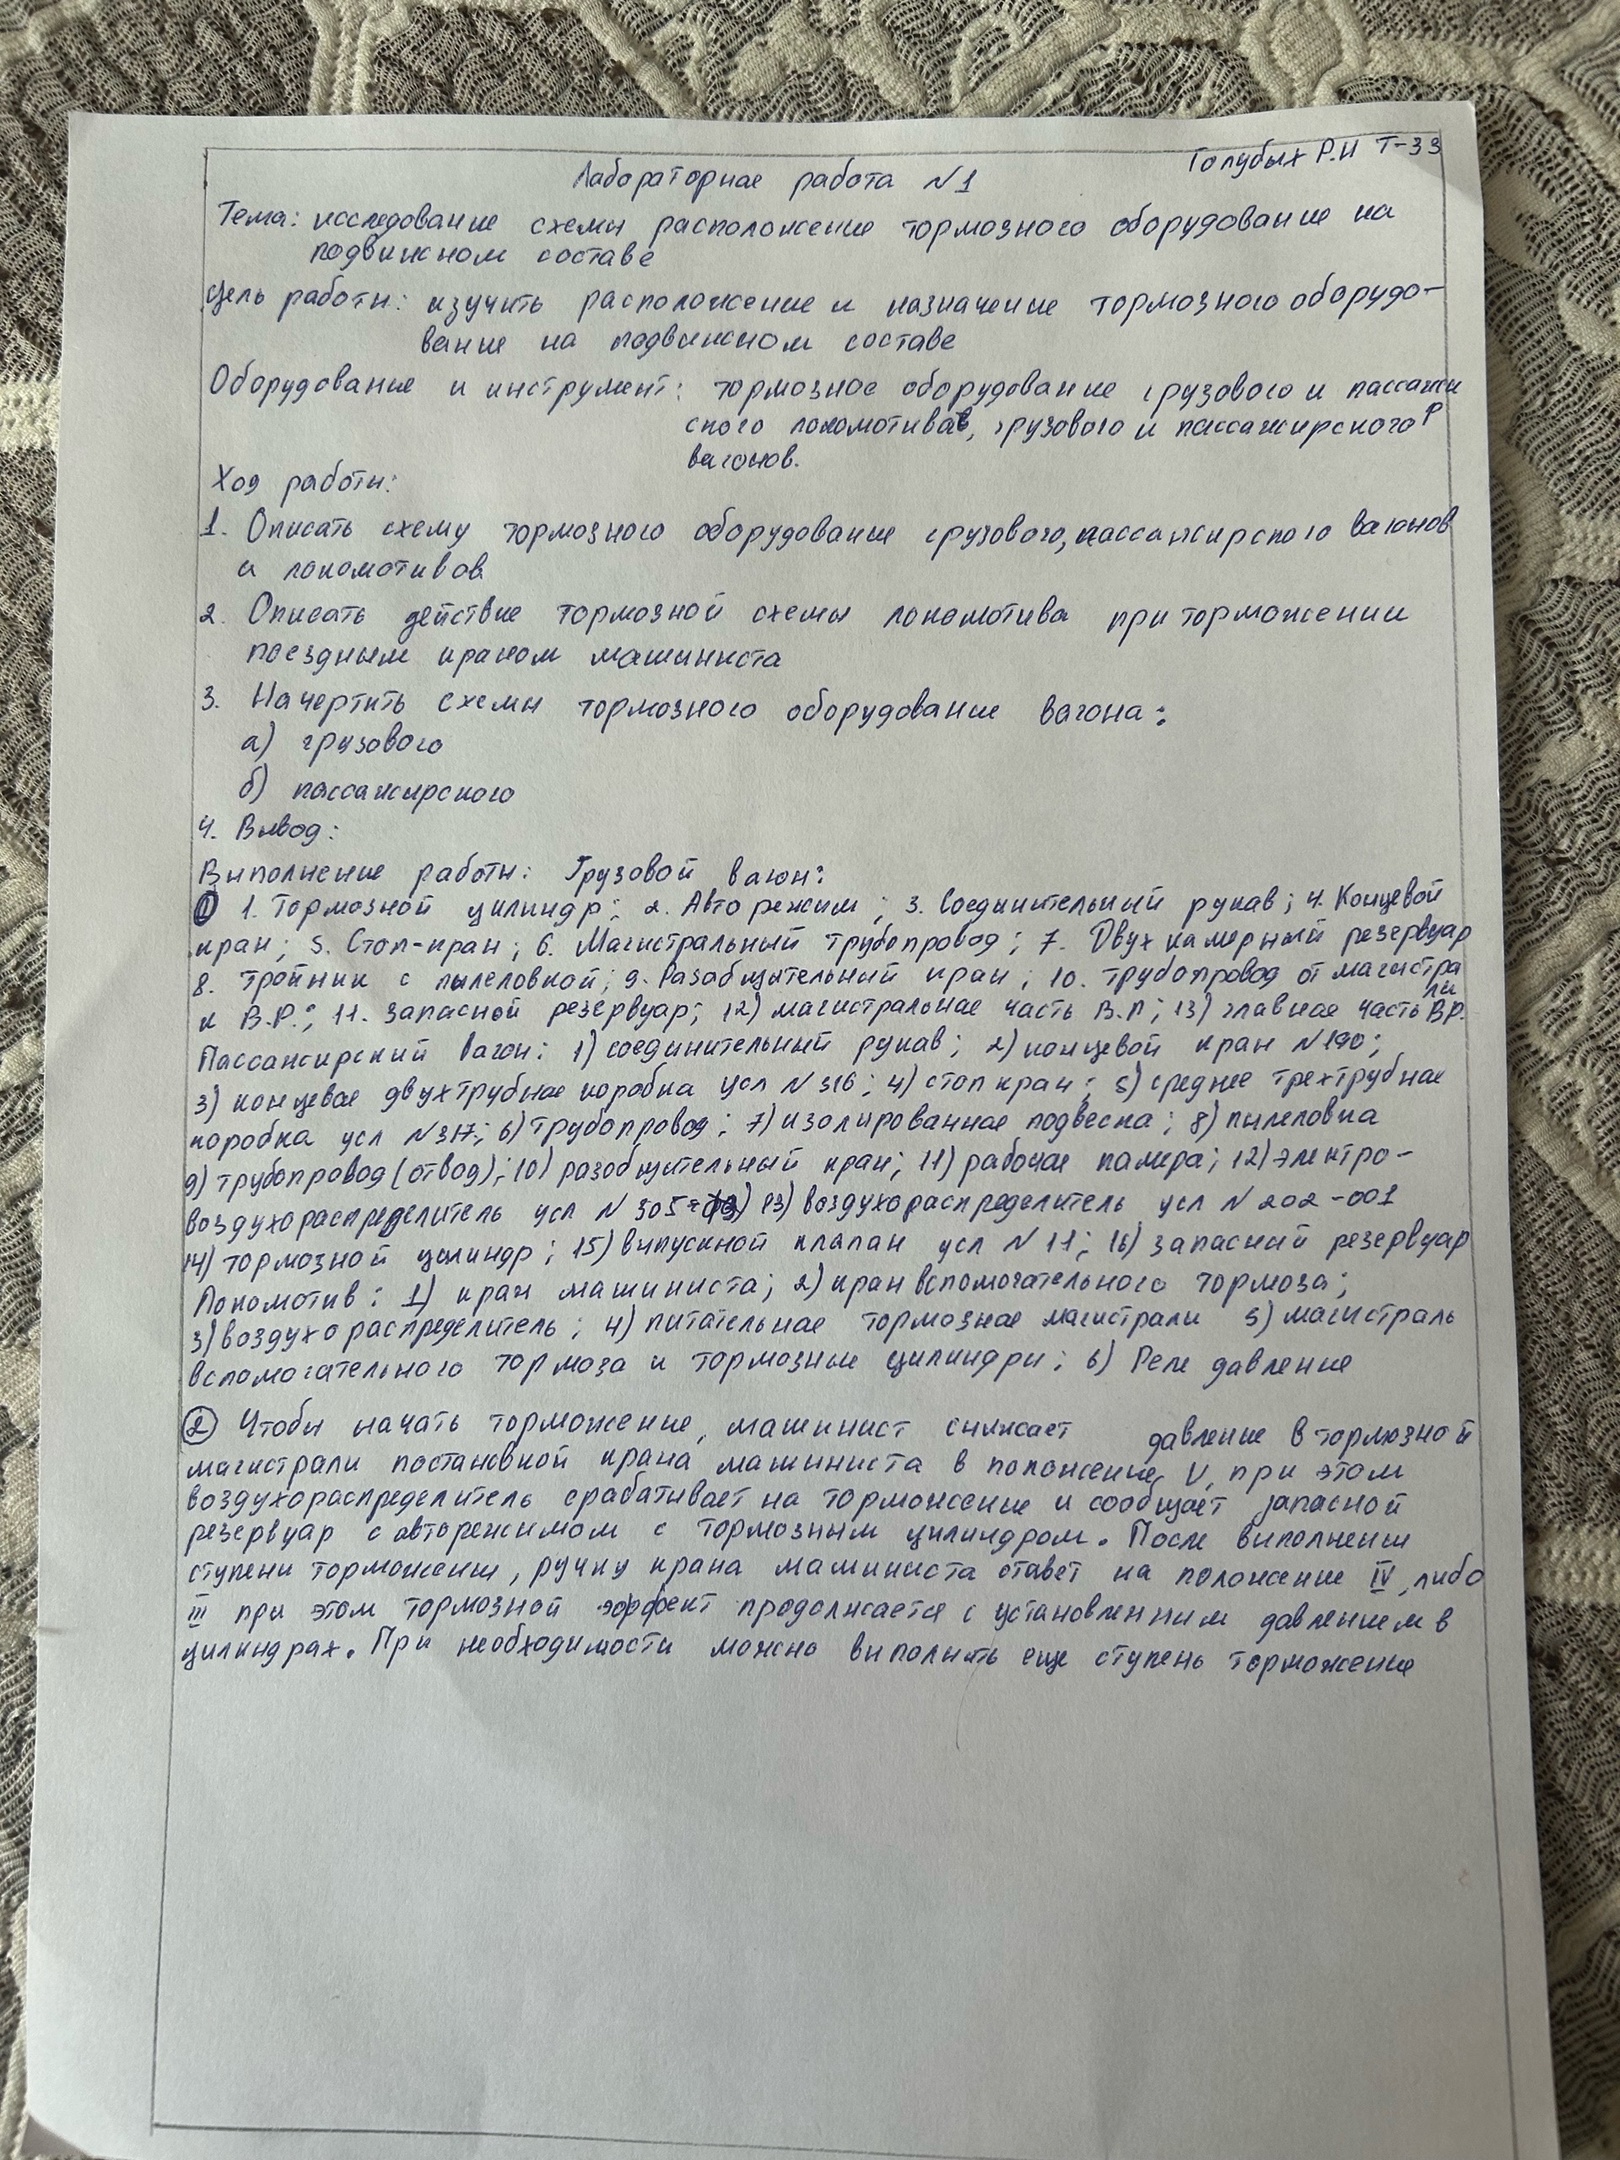 Голубых Р.И Т-33
Лабораторная работа №1
Тема: исследование схемы расположение тормозного оборудование на
подвижном составе
Цель работы: изучить расположение и назначение тормозного оборудо-
вание на подвижном составе
Оборудование и инструмент: тормозное оборудование грузового и пассажи
ского локомотивов, грузового и пассажирского р
вагонов.
Ход работы:
1. Описать схему тормозного оборудование грузового, пассажирского вагонов
и локомотивов
2. Описать действие тормозной схемы локомотива при торможении
поездным краном машиниста
3. Начертить схемы тормозного оборудование вагона:
а) грузового
б) пассажирского
4. Вывод:
Выполнение работы: Грузовой вагон:
① 1. Тормозной цилиндр; 2. Авторежим; 3. Соединительный рукав; 4. Концевой
кран; 5. Стоп-кран; 6. Магистральный трубопровод; 7. Двухкамерный резервуар
8. тройник с пылеловкой; 9. Разабщительный кран; 10. трубопровод от магистра
ли
к В.Р.; 11. запасной резервуар; 12) магистральная часть В.П; 13) главная часть ВР.
Пассажирский вагон: 1) соединительный рукав; 2) концевой кран №190;
3) концевая двухтрубная коробка усл №316; 4) стоп кран; 5) среднее трехтрубная
коробка усл №317; 6) трубопровод; 7) изолированная подвеска; 8) пылеловка
9) трубопровод (отвод); 10) разобщительный кран; 11) рабочая камера; 12) электро-
воздухораспределитель усл №305 13) воздухораспределитель усл №202-001
14) тормозной цилиндр; 15) выпускной клапан усл №11; 16) запасный резервуар
Локомотив: 1) кран машиниста; 2) кран вспомогательного тормоза;
3) воздухораспределитель; 4) питательная тормозная магистрали 5) магистраль
вспомогательного тормоза и тормозные цилиндры; 6) Реле давление
② Чтобы начать торможение, машинист снижает давление в тормозной
магистрали постановкой крана машиниста в положение V, при этом
воздухораспределитель срабатывает на торможение и сообщает запасной
резервуар с авторежимом с тормозным цилиндром. После выполнения
ступени торможения, ручку крана машиниста ставет на положение IV, либо
III при этом тормозной эффект продолжается с установленным давлением в
цилиндрах. При необходимости можно выполнить еще ступень торможение